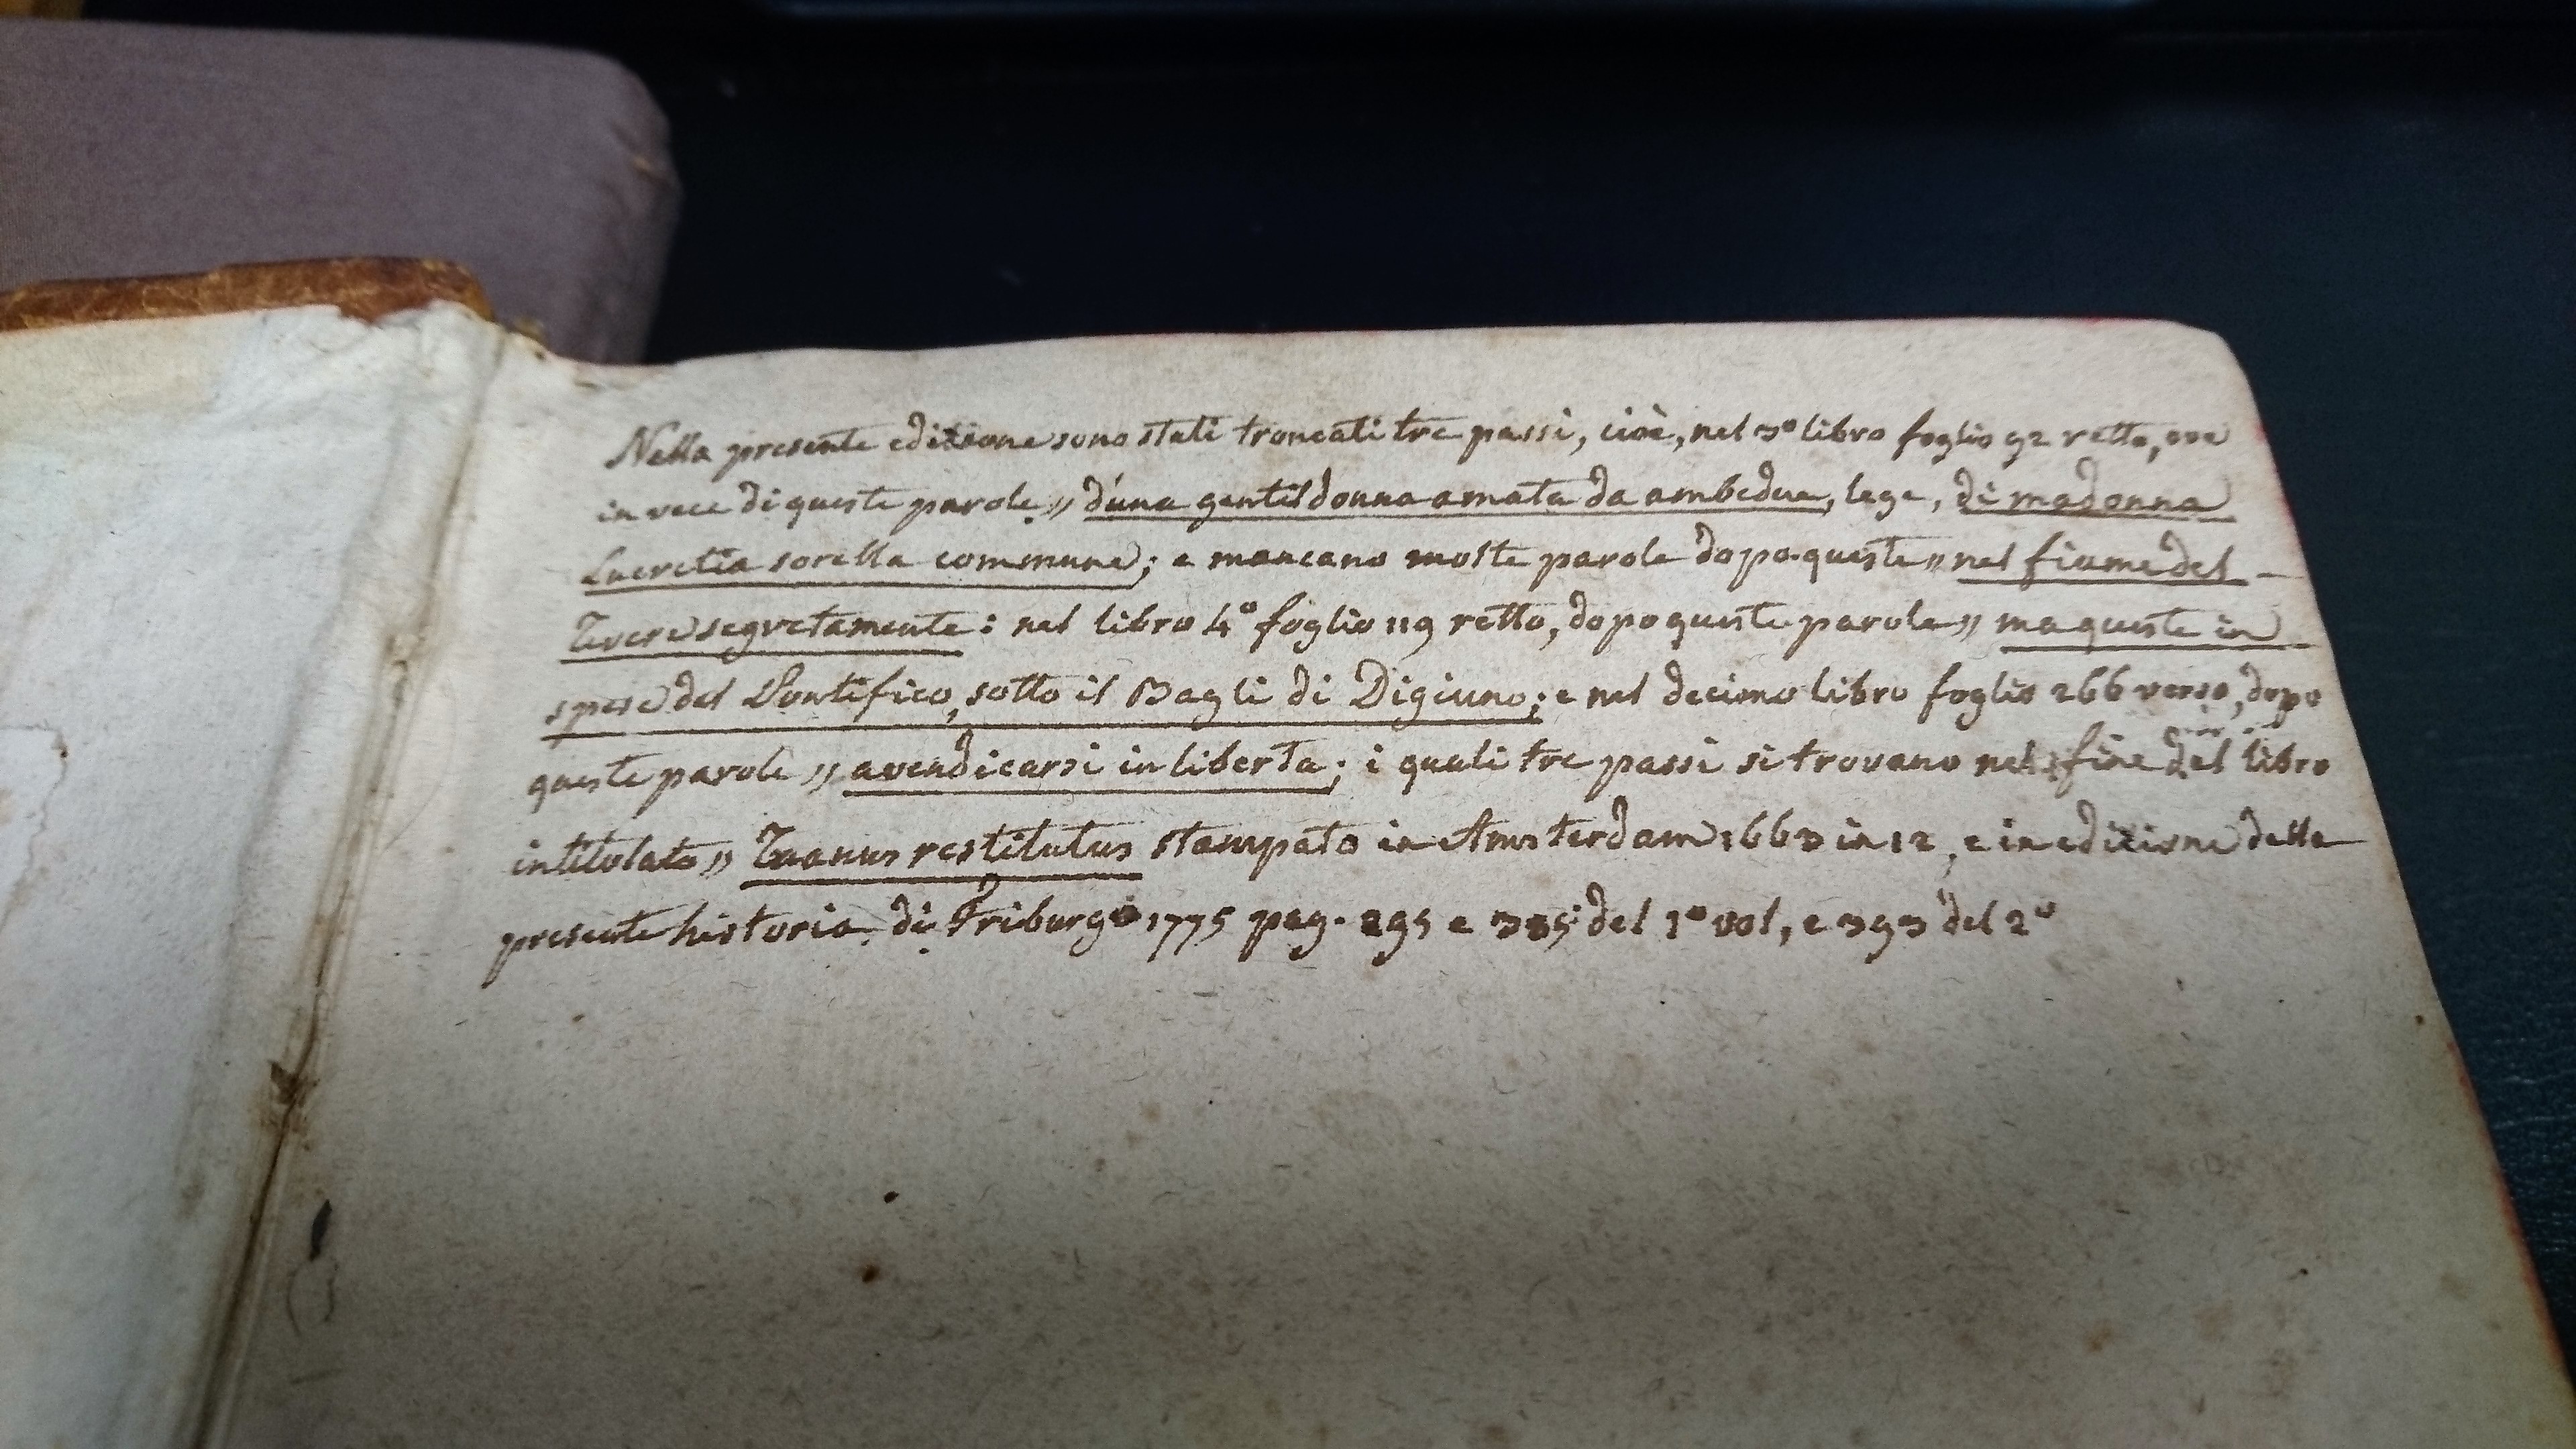 Nella presente editione sono stati troncati tre passi, cioè, nel 3º libro foglio 92 retto, ove
in vece di queste parole „ d'una gentildonna amata da ambedue, lege, di madonna
Lucretia sorella commune; e mancano molte parole dopo queste „ nel fiume del
Tevere segretamente: nel libro 4º foglio 119 retto, dopo queste parole „ ma queste in
spese del Pontifico, sotto il Bagli di Digiuno; e nel decimo libro foglio 266 verso, dopo
queste parole „ a vendicarsi in liberta; i quali tre passi si trovano nel fine del libro
intitulato „ Tuanus restitutus stampato in Amsterdam 1663 in 12, e in edicione della
presente historia di Friburgo 1775 pag. 295 e 385 del 1º vol, e 393 del 2º